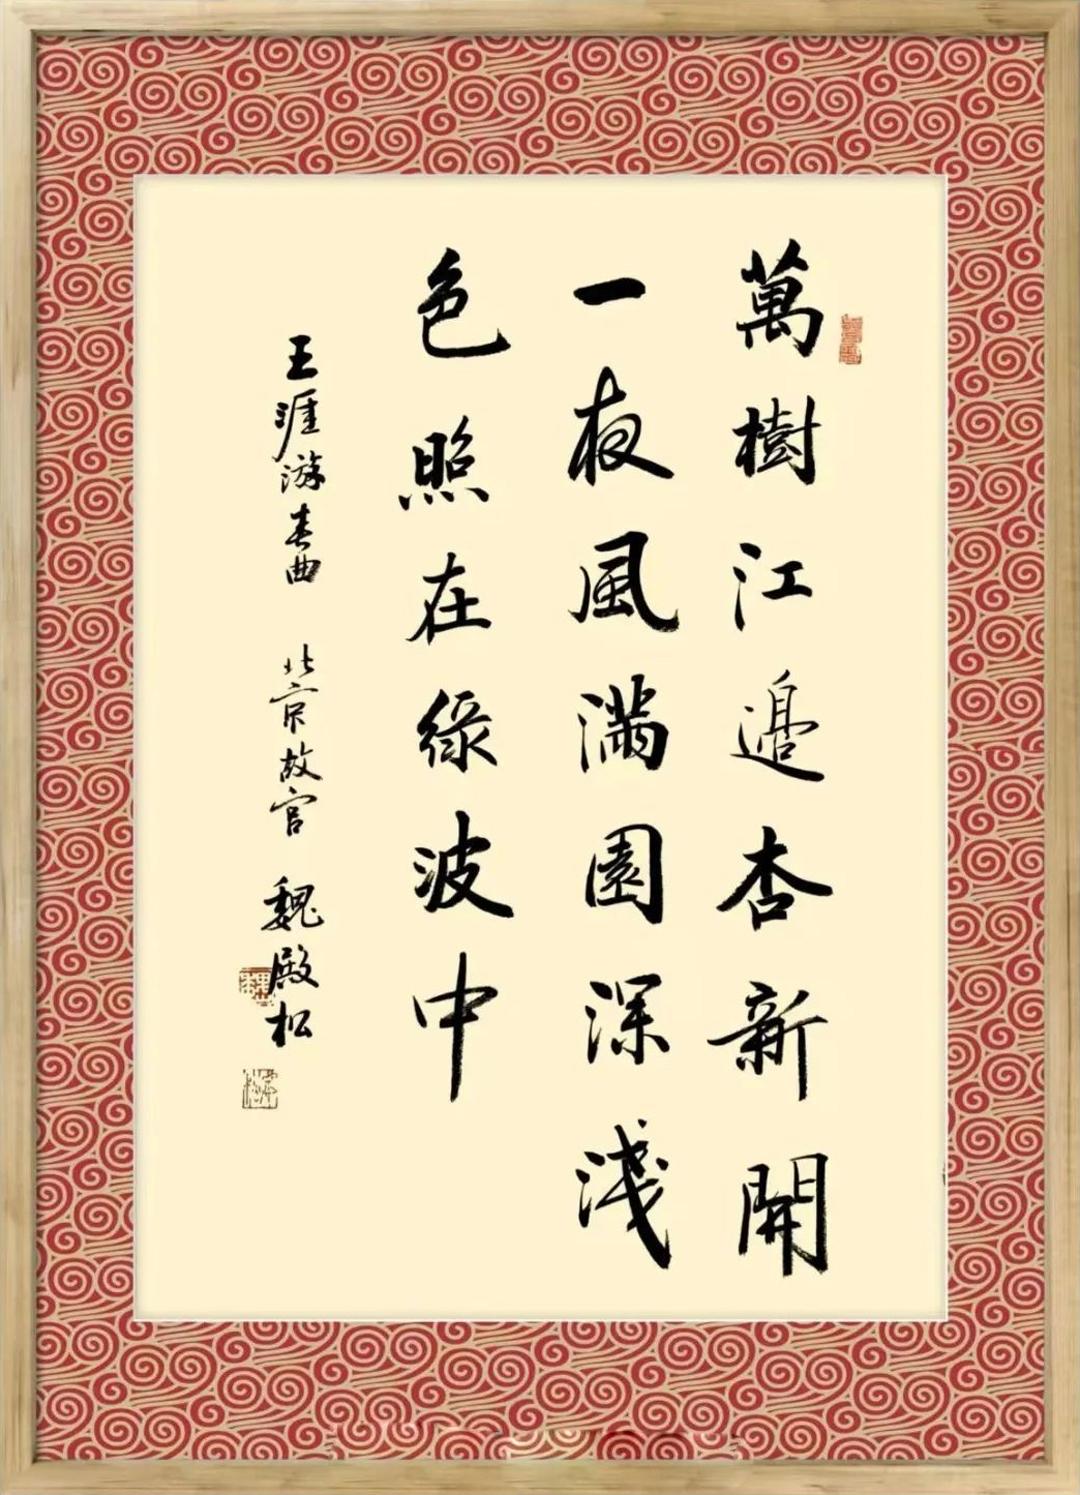 萬樹江邊杏新開
一夜風滿園深淺
色照在綠波中
王涯游春曲 北京故宫 魏殿松